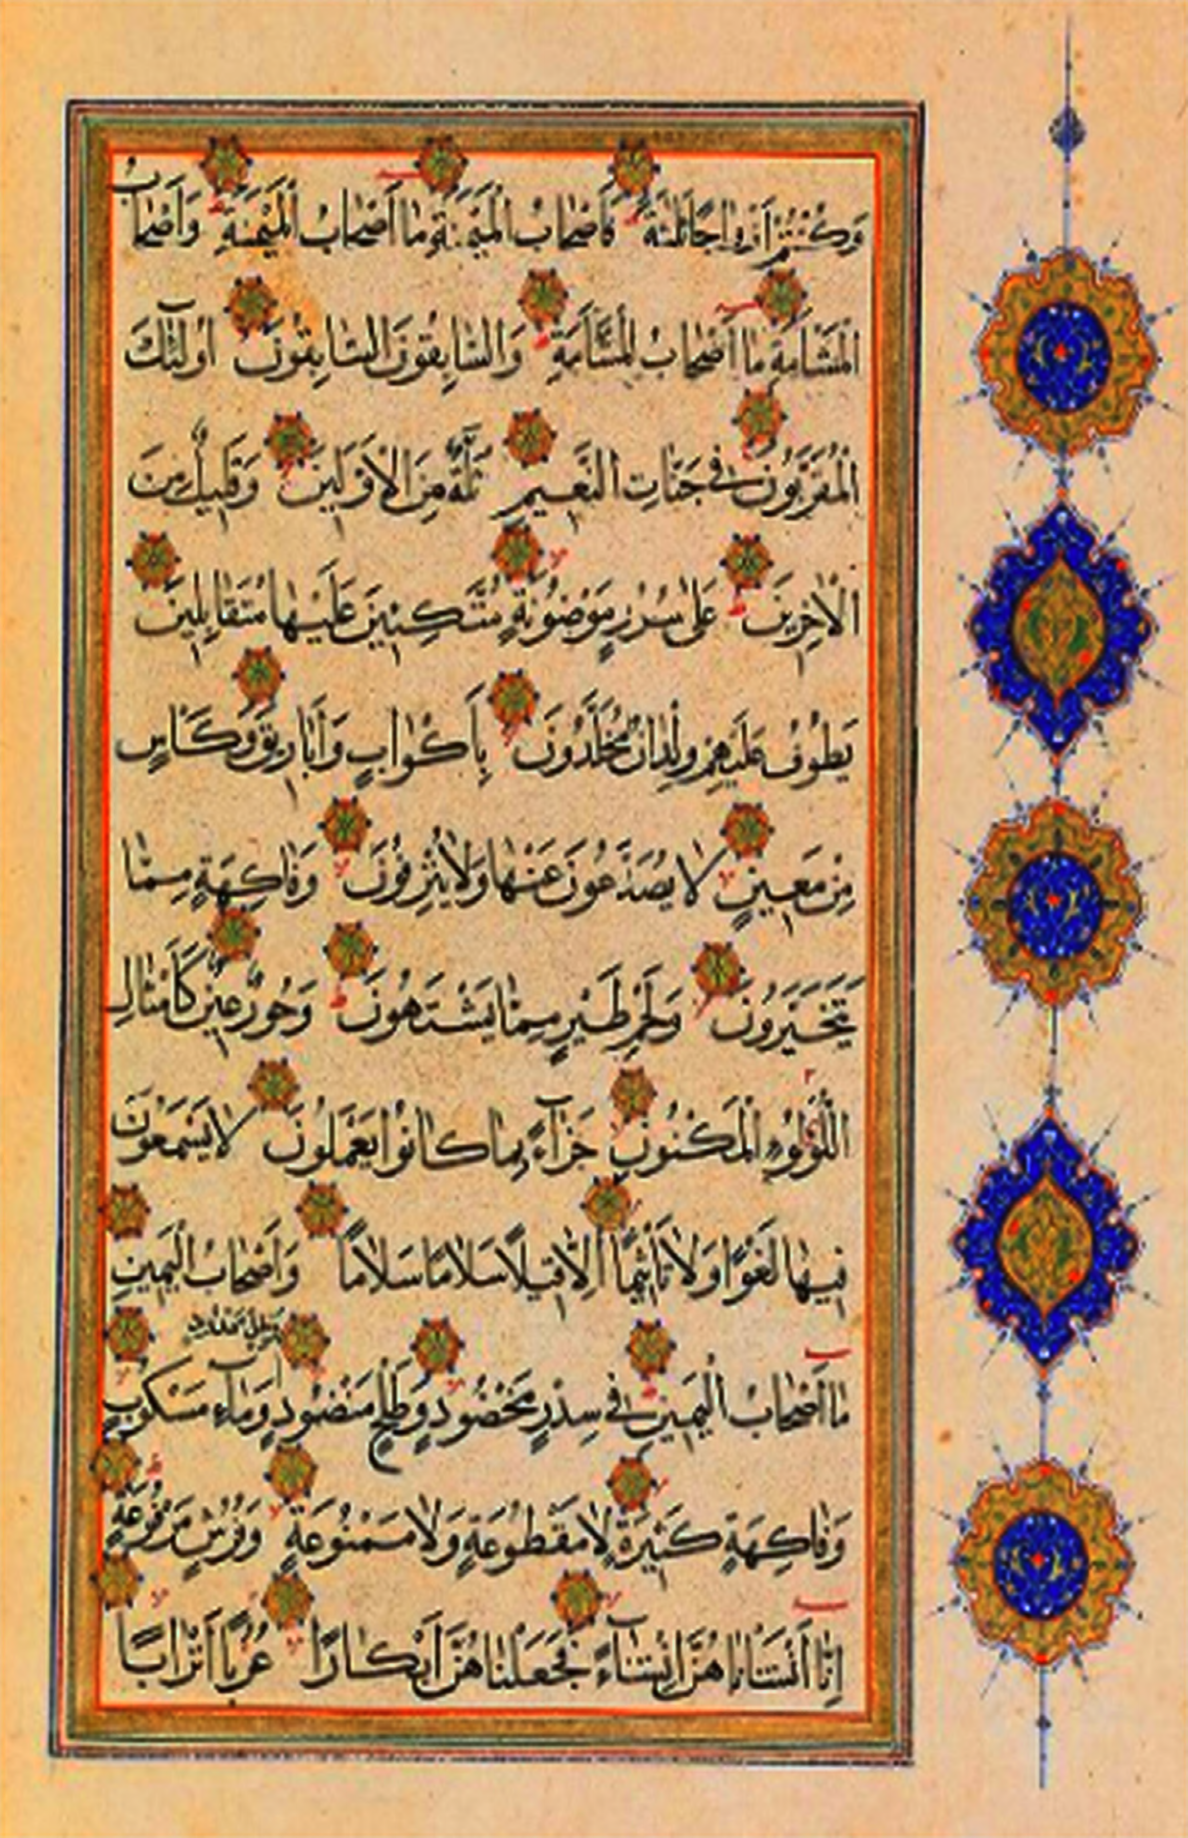 وَكُنْتُمْ أَزْوَاجًا ثَلَٰثَةً فَأَصْحَابُ الْمَيْمَنَةِ مَا أَصْحَابُ الْمَيْمَنَةِ وَأَصْحَابُ
الْمَشْأَمَةِ مَا أَصْحَابُ الْمَشْأَمَةِ وَالسَّابِقُونَ السَّابِقُونَ أُولَٰئِكَ
الْمُقَرَّبُونَ فِي جَنَّاتِ النَّعِيمِ ثُلَّةٌ مِنَ الْأَوَّلِينَ وَقَلِيلٌ مِنَ
الْآخِرِينَ عَلَىٰ سُرُرٍ مَوْضُونَةٍ مُتَّكِئِينَ عَلَيْهَا مُتَقَابِلِينَ
يَطُوفُ عَلَيْهِمْ وِلْدَانٌ مُخَلَّدُونَ بِأَكْوَابٍ وَأَبَارِيقَ وَكَأْسٍ
مِنْ مَعِينٍ لَا يُصَدَّعُونَ عَنْهَا وَلَا يُنْزِفُونَ وَفَاكِهَةٍ مِمَّا
يَتَخَيَّرُونَ وَلَحْمِ طَيْرٍ مِمَّا يَشْتَهُونَ وَحُورٌ عِينٌ كَأَمْثَالِ
اللُّؤْلُؤِ الْمَكْنُونِ جَزَاءً بِمَا كَانُوا يَعْمَلُونَ لَا يَسْمَعُونَ
فِيهَا لَغْوًا وَلَا تَأْثِيمًا إِلَّا قِيلًا سَلَامًا سَلَامًا وَأَصْحَابُ الْيَمِينِ
مَا أَصْحَابُ الْيَمِينِ فِي سِدْرٍ مَخْضُودٍ وَطَلْحٍ مَنْضُودٍ وَظِلٍّ مَمْدُودٍ وَمَاءٍ مَسْكُوبٍ
وَفَاكِهَةٍ كَثِيرَةٍ لَا مَقْطُوعَةٍ وَلَا مَمْنُوعَةٍ وَفُرُشٍ مَرْفُوعَةٍ
إِنَّا أَنْشَأْنَاهُنَّ إِنْشَاءً فَجَعَلْنَاهُنَّ أَبْكَارًا عُرُبًا أَتْرَابًا